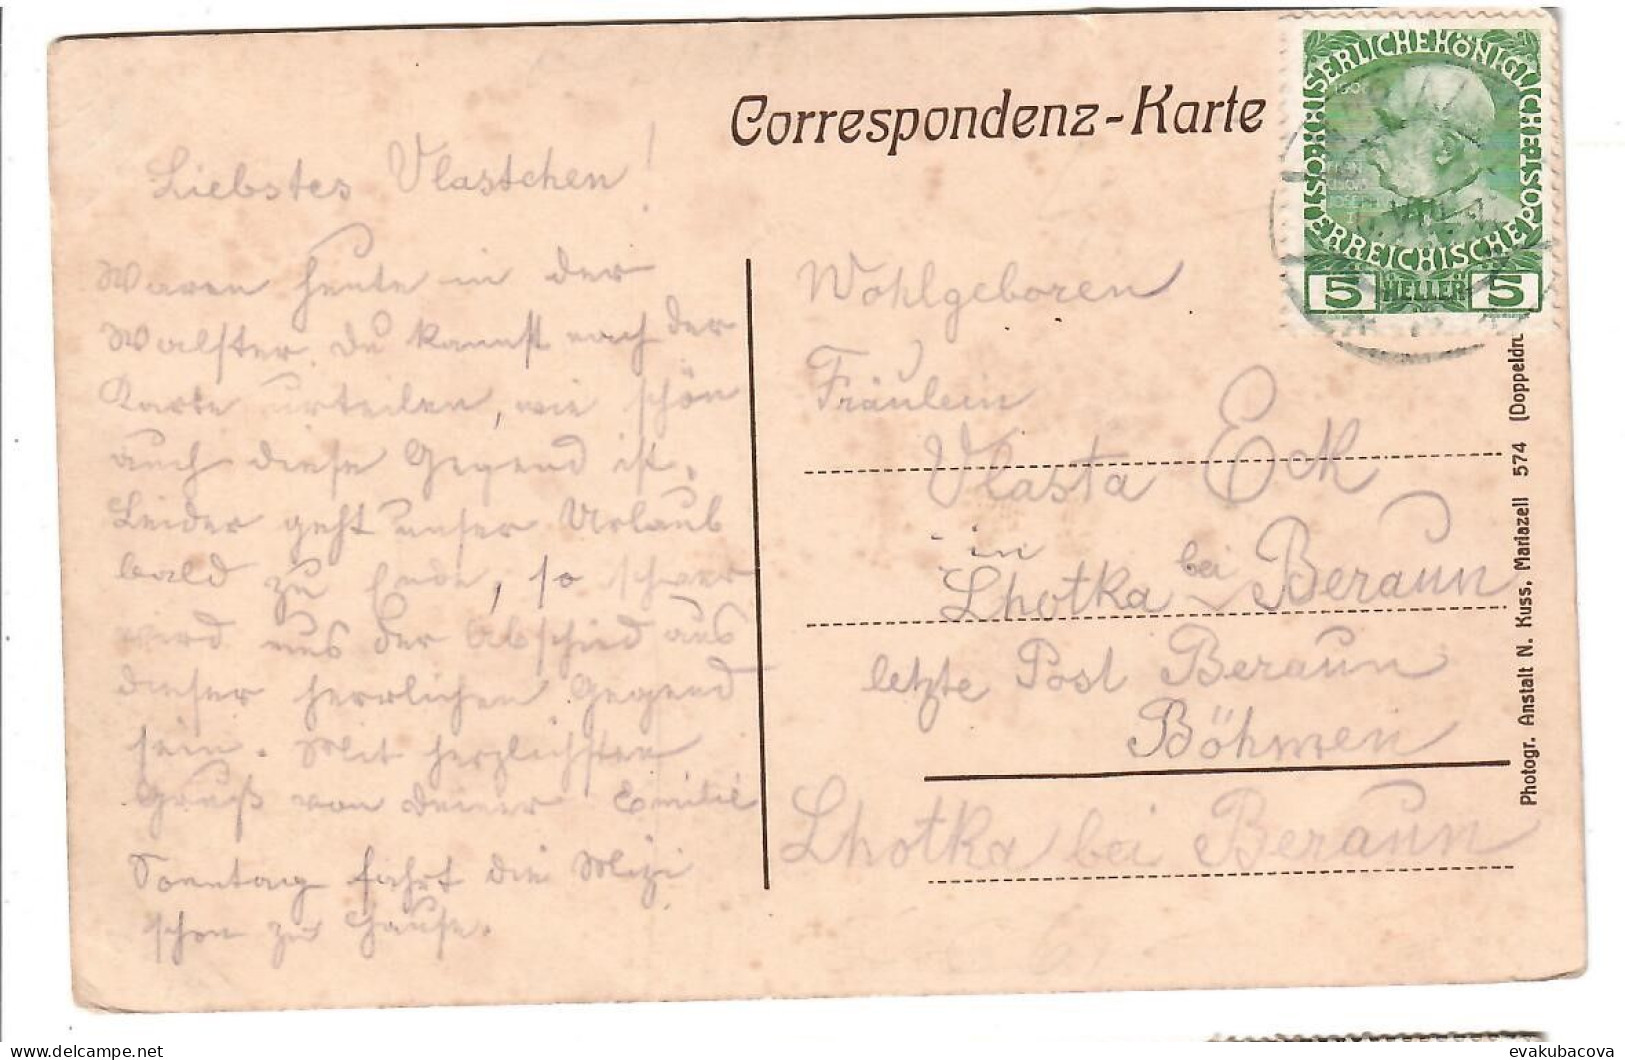 Correspondenz-Karte
KAISERLICHE KÖNIGLICHE ÖSTERREICHISCHE POST
5 HELLER 5
Liebstes Vlastchen!
Waren heute in der
Walster. Du kannst nach der
Karte urteilen, wie schön
auch diese Gegend ist.
Leider geht unser Urlaub
bald zu Ende, so schwer
wird uns der Abschied aus
dieser herrlichen Gegend
sein. Mit herzlichsten
Gruß von deiner Emilie
Sonntag fahrt die Mizi
schon zu Hause.
Wohlgeboren
Fräulein
Vlasta Eck
in
Lhotka bei Beraun
letzte Post Beraun
Böhmen
Lhotka bei Beraun
Photogr. Anstalt N. Kuss, Mariazell 574 (Doppeldru
evakubacova